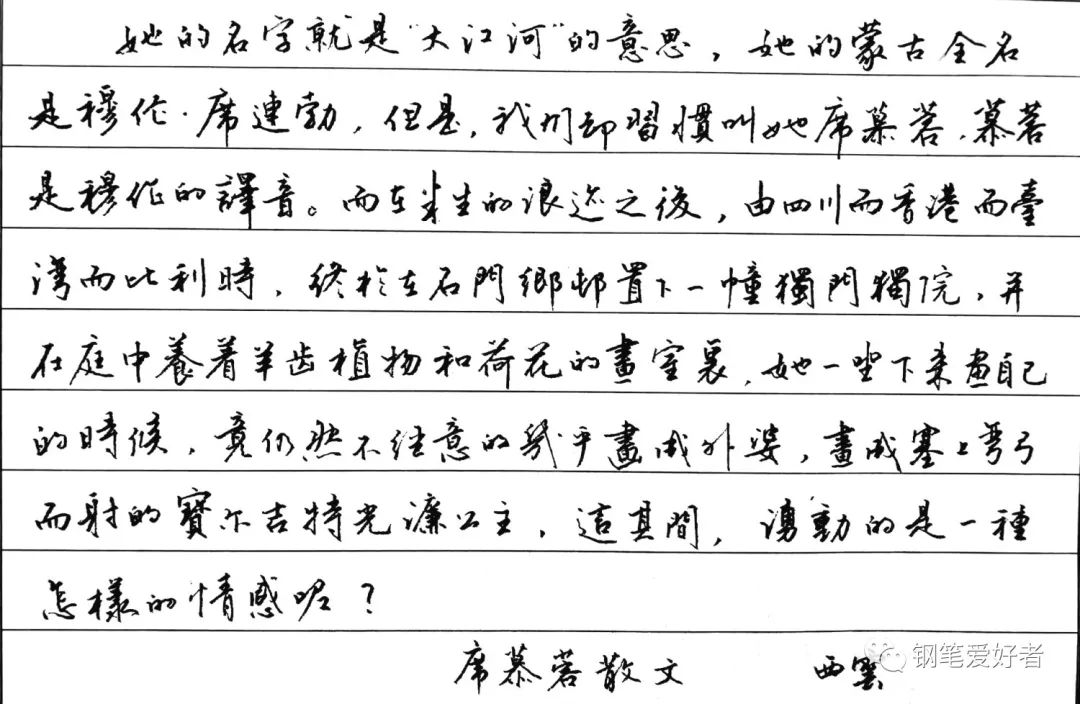 她的名字就是“大江河”的意思，她的蒙古全名
是穆伦·席連勃，但是，我们却習慣叫她席慕蓉，慕蓉
是穆伦的譯音。而在半生的浪迹之後，由四川而香港而臺
湾而比利時，終於在石門鄉邨置下一幢獨門獨院，并
在庭中養着羊齿植物和荷花的畫室裏，她一坐下来畫自己
的時候，竟仍然不经意的幾乎畫成外婆，畫成塞上弯弓
而射的寶尔吉特光濂公主，這其間，湧動的是一種
怎樣的情感呢？
席慕蓉散文 西雲
钢笔爱好者